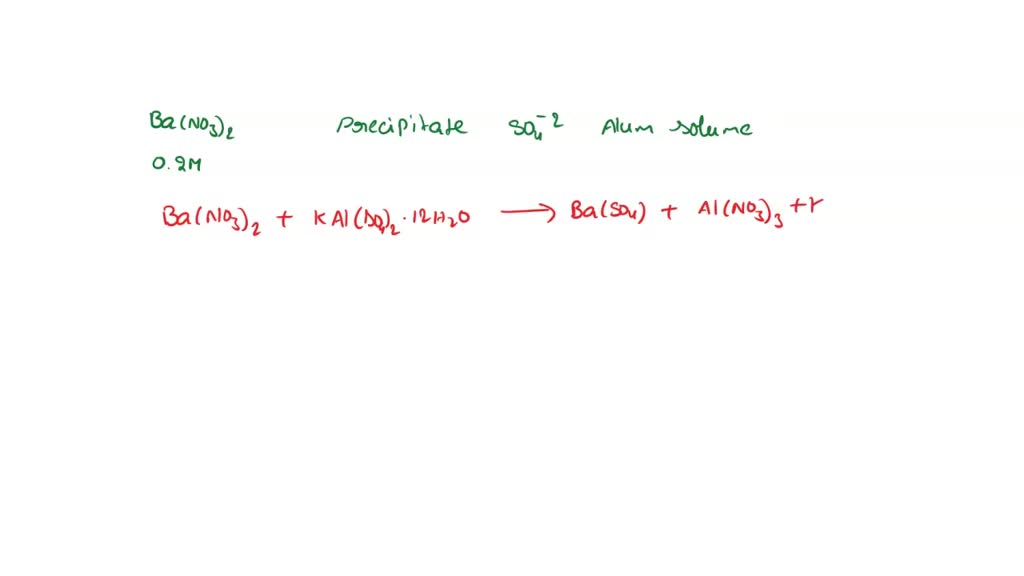 Ba(NO3)2 Precipitate SO4^-2 Alum solume
0.2M
Ba(NO3)2 + KAl(SO4)2 · 12H2O → Ba(SO4) + Al(NO3)3 +